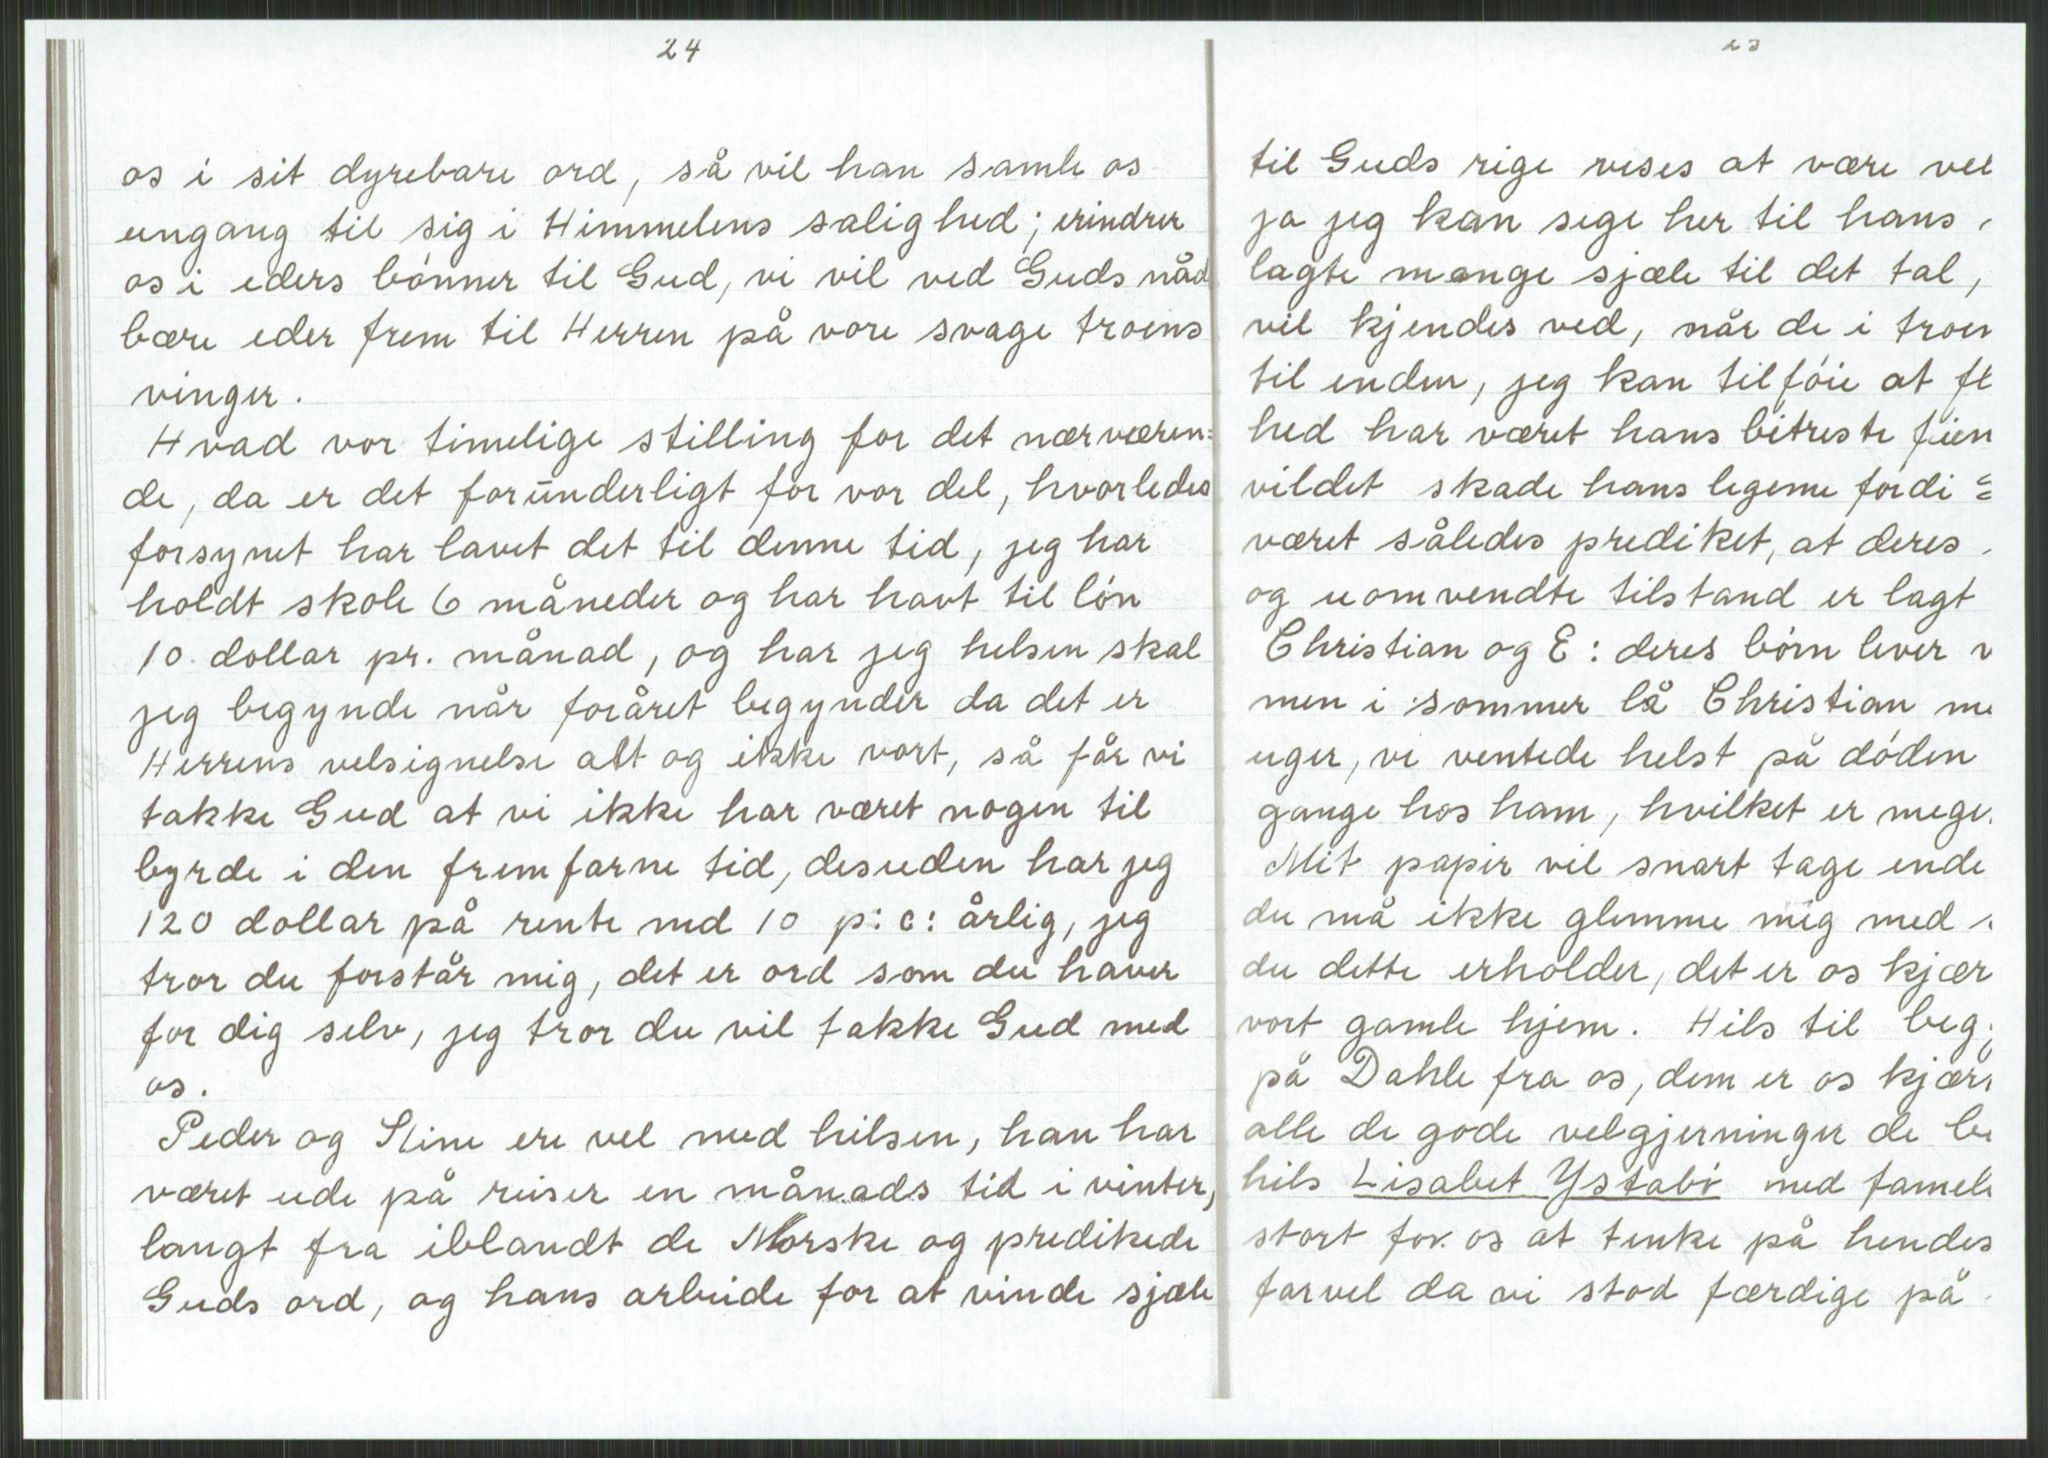 24
os i sit dyrebare ord, så vil han samle os
engang til sig i Himmelens salighed; erindrer
os i eders bønner til Gud, vi vil ved Guds nåd
bære eder frem til Herren på vore svage troens
vinger.
Hvad vor timelige stilling for det nærværen=
de, da er det forunderligt for vor del, hvorledes
forsynet har lavet det til denne tid, jeg har
holdt skole 6 måneder og har havt til løn
10 dollar pr. månad, og har jeg helsen skal
jeg begynde når foråret begynder da det er
Herrens velsignelse alt og ikke vort, så får vi
takke Gud at vi ikke har været nogen til
byrde i den fremfarne tid, desuden har jeg
120 dollar på rente med 10 p: c: årlig, jeg
tror du forstår mig, det er ord som du haver
for dig selv, jeg tror du vil takke Gud med
os.
Peder og Stine ere vel med hilsen, han har
været ude på reiser en månads tid i vinter,
langt fra iblandt de Norske og predikede
Guds ord, og hans arbeide for at vinde sjæle
til Guds rige vises at være vel
ja jeg kan sige her til hans
lagte mange sjæle til det tal,
vil kjendes ved, når de i troen
til enden, jeg kan tilføie at fl
hed har været hans bitreste fien
vildet skade hans legeme fordi
været således prediket, at deres
og uomvendte tilstand er lagt
Christian og E: deres børn lever v
men i sommer lå Christian me
uger, vi ventede helst på døden
gange hos ham, hvilket er mege
Mit papir vil snart tage ende
du må ikke glemme mig med
du dette erholder, det er os kjær
vort gamle hjem. Hils til beg
på Dahle fra os, dem er os kjær
alle de gode velgjerninger de be
hils Lisabet Ystabø med fameli
stort for os at tenke på hendes
farvel da vi stod færdige på